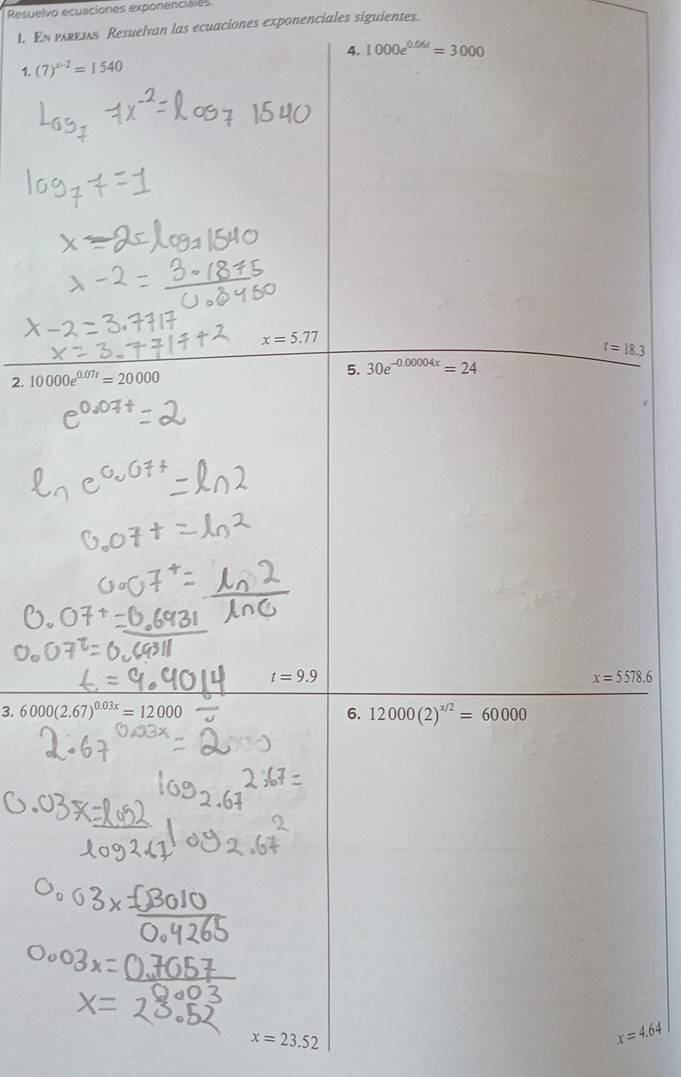 Resuelvo ecuaciones exponenciales.
I. EN PAREJAS Resuelvan las ecuaciones exponenciales siguientes.
1. (7)^{x-2} = 1540
Log₇ 7x^{-2} = log₇ 1540
log₇ 7 = 1
x - 2 = log₇ 1540
x - 2 = 3.1875 / 0.8450
x - 2 = 3.7717
x = 3.7717 + 2
x = 5.77
2. 10000e^{0.07t} = 20000
e^{0.07t} = 2
ln e^{0.07t} = ln 2
0.07t = ln 2
0.07t = ln 2 / ln e
0.07t = 0.6931
0.07t = 0.69311
t = 9.9014
t = 9.9
3. 6000(2.67)^{0.03x} = 12000
2.67^{0.03x} = 2000
log_{2.67} 2.67 =
0.03x = log 2 / log 2.67
log_{2.67} 2
0.03x = 0.3010 / 0.4265
0.03x = 0.7057 / 0.03
x = 23.52
x = 23.52
4. 1000e^{0.06t} = 3000
t = 18.3
5. 30e^{-0.00004x} = 24
x = 5578.6
6. 12000(2)^{x/2} = 60000
x = 4.64